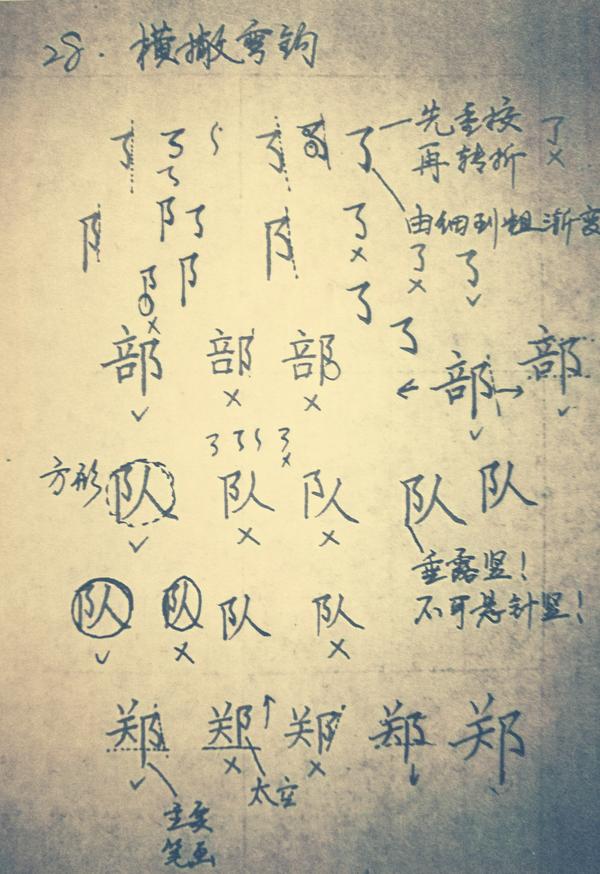 28. 横撇弯钩
先重按
再转折
由细到粗渐变
部 部 部 部 部
方形 队 队 队 队 队
垂露竖!
不可悬针竖!
队 队 队 队
郑 郑 郑 郑 郑
太空
主要
笔画